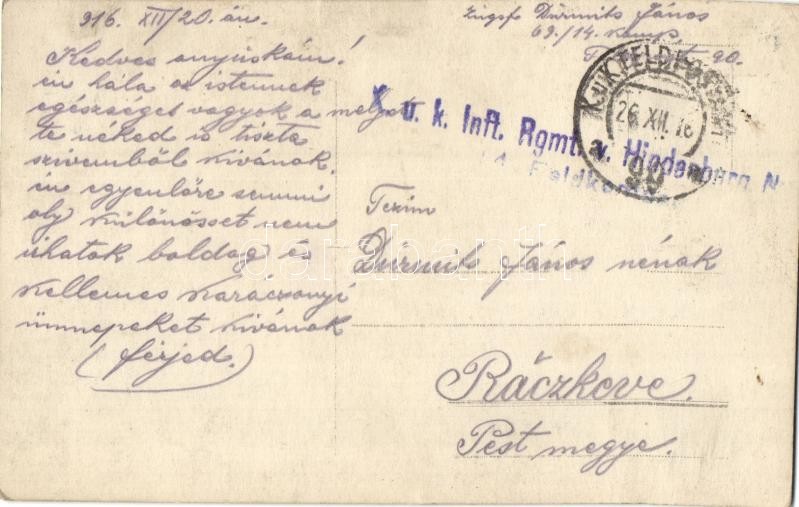 916. XII/20. án.
Kedves anyuskám!
én hála az istennek
egészséges vagyok a melyet
te néked is tiszta
szívemből kivánok.
én egyenlőre semmi
oly különösset nem
irhatok boldog és
Kellemes Karácsonyi
ünnepeket kivánok
(férjed.)
Zugsf. Durmits János
69./14. komp.
90.
K. u. k. Inft. Rgmt. v. Hindenburg N
14. Feldko
K.u.K. FELDPOSTAMT
26. XII. 16
90
darabanth
Durmits János nénak
Ráczkeve.
Pest megye.